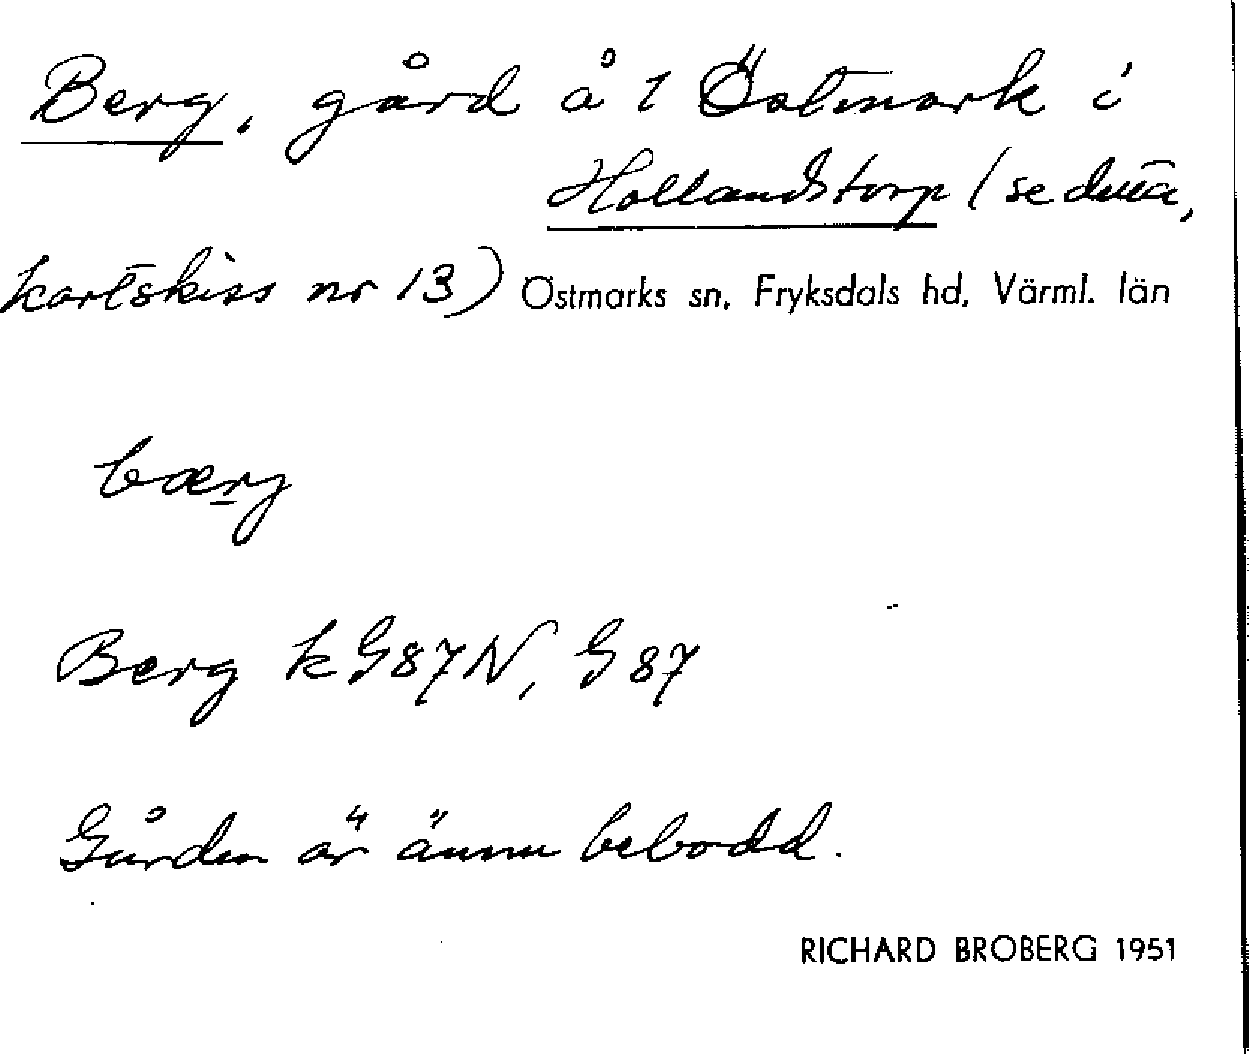 Berg, gård å 1 Östmark i
Hollandstorp (se detta,
kartskiss nr 13) Östmarks sn, Fryksdals hd, Värml. län
bærj
Berg k G87N, G87
Gården är ännu bebodd.
RICHARD BROBERG 1951